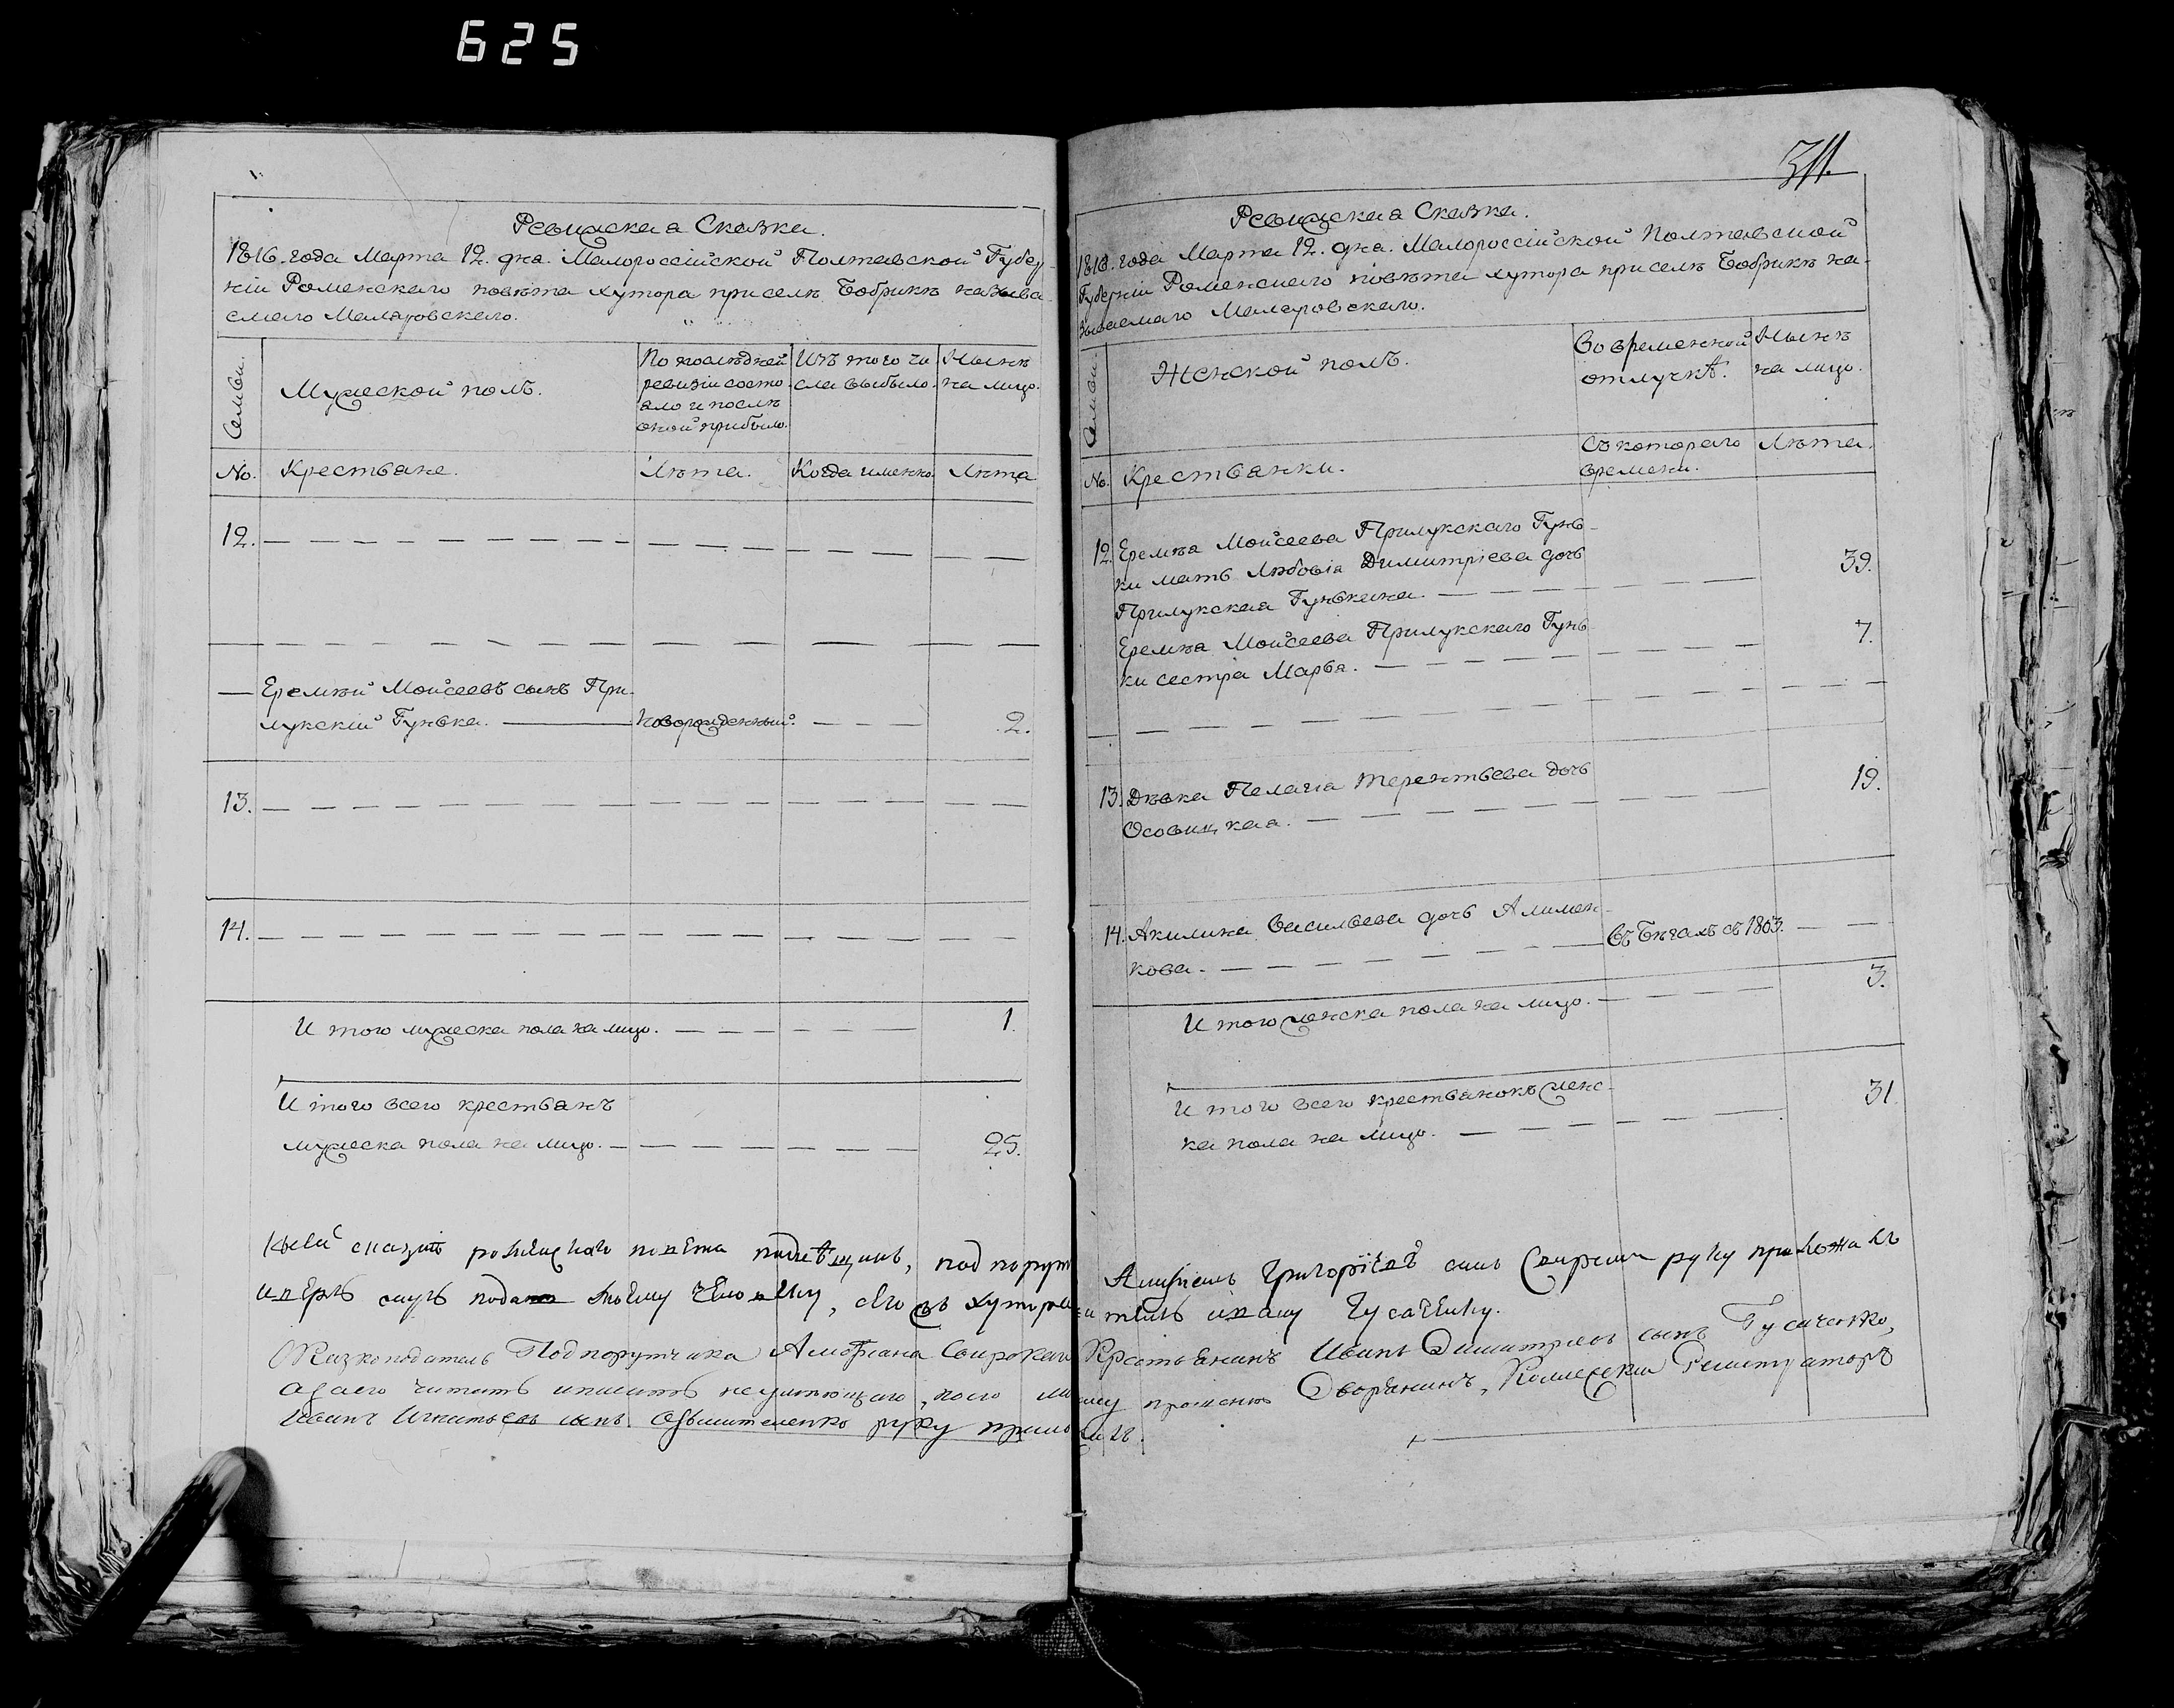 625
Ревижская Сказка.
1816. года Марта 12. дня. Малороссійской Полтавской Губер-
ніи Роменского повѣта хутора приселѣ Бобрикѣ называ-
емаго Маляровскаго.
Семьи.
Мужеской полъ.
По послѣдней ревизіи состо-
яло и послѣ оной прибыло.
Изъ того чи-
сла выбыло.
Нынѣ на лицо.
No. Крестьяне. Лѣта. Когда именно. Лѣта
12.
Еремѣй Моисеевъ сынъ При-
лукскій Гунька. новорожденный. 2.
13.
14.
И того мужеска пола на лицо. 1.
И того всего крестьянъ
мужеска пола на лицо. 25.
311.
Ревижская Сказка.
1816. года Марта 12. дня. Малороссійской Полтавской
Губерніи Роменскаго повѣта хутора приселѣ Бобрикѣ на-
зываемаго Маляровскаго.
Семьи.
Женской полъ.
Во временной отлучкѣ.
Нынѣ на лицо.
Съ котораго времени.
Лѣта.
No. Крестьянки.
12. Еремѣя Моисеева Прилукскаго Гунь-
ки мать Любовія Димитріева дочь 39.
Прилукская Гунькина.
Еремѣя Моисеева Прилукскаго Гунь- 7.
ки сестра Марѳа.
13. Дѣвка Пелагія Терентьева дочь 19.
Осовицкая.
14. Акилина Васильева дочь Алимен-
кова. Въ бѣгахъ съ 1803.
И того женска пола на лицо. 3.
И того всего крестьянокъ женс-
ка пола на лицо. 31.
Григоріевъ синъ руку приложилъ
Гусаченку.
Подпорутчика
Крестьянинъ Иванъ Димитріевъ сынъ Гусаченко,
читать писать неумѣющаго
прошенію Дворянинъ, Колежскій Регистраторъ
Иванъ Игнатьевъ сынъ руку приложилъ.